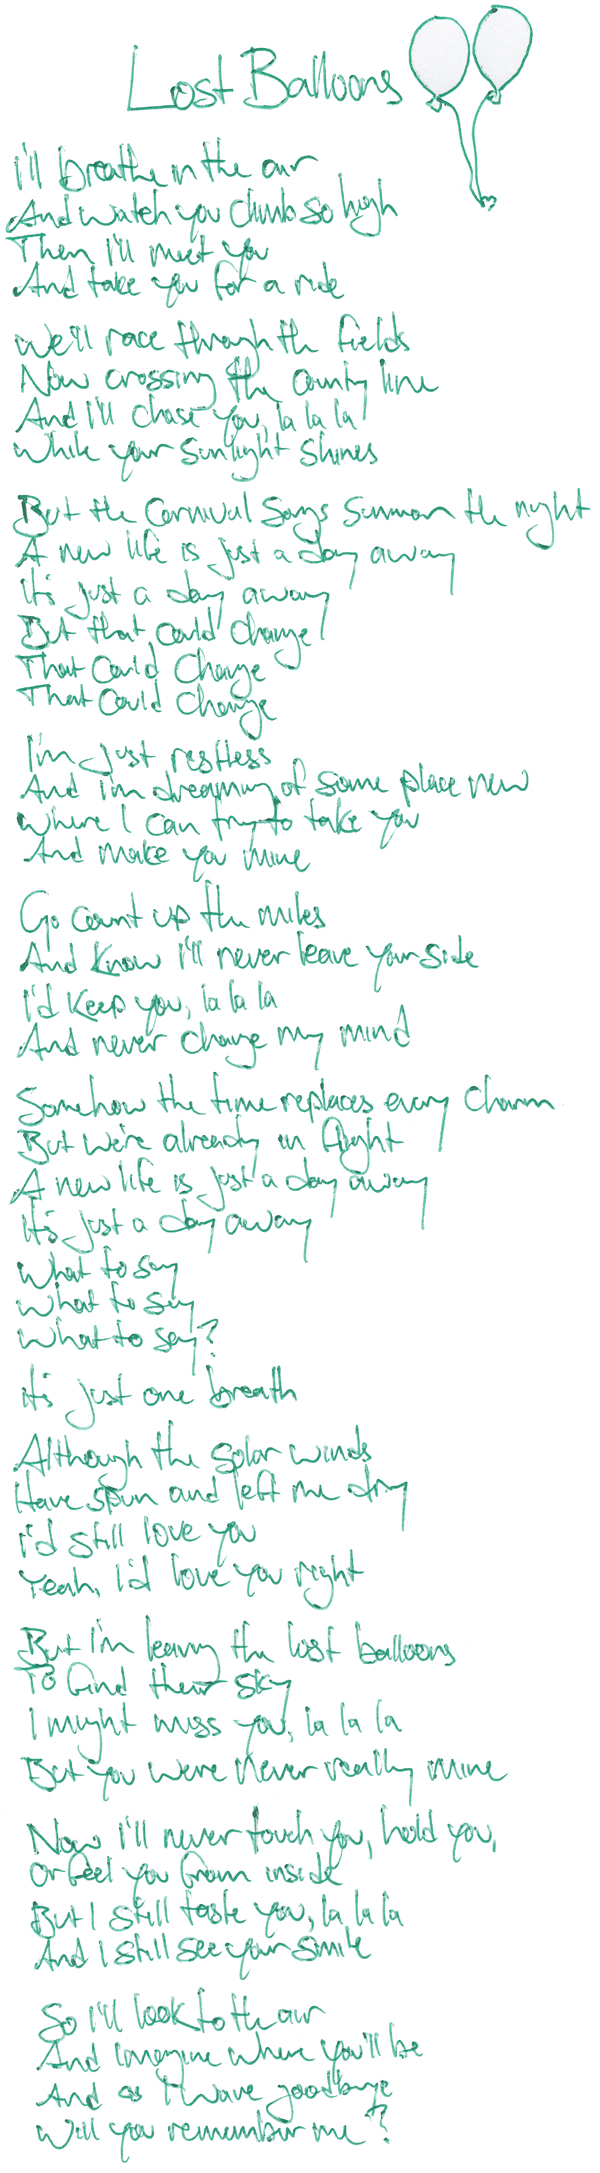 Lost Balloons
I'll breathe in the air
And watch you climb so high
Then I'll meet you
And take you for a ride
We'll race through the fields
Now crossing the county line
And I'll chase you, la la la
While your sunlight shines
But the Carnival Says Summon the night
A new life is just a day away
It's just a day away
But that could change
That could change
That could change
I'm just restless
And I'm dreaming of some place new
Where I can try to take you
And make you mine
Go count up the miles
And know I'll never leave your side
I'd keep you, la la la
And never change my mind
Somehow the time replaces every charm
But we're already in flight
A new life is just a day away
It's just a day away
What to say
What to say
What to say?
It's just one breath
Although the solar winds
Have spun and left me dry
I'd still love you
Yeah, I'd love you right
But I'm leaving the lost balloons
To find their sky
I might miss you, la la la
But you were never really mine
Now I'll never touch you, hold you,
Or feel you from inside
But I still taste you, la la la
And I still see your smile
So I'll look to the air
And imagine where you'll be
And as I wave goodbye
Will you remember me?